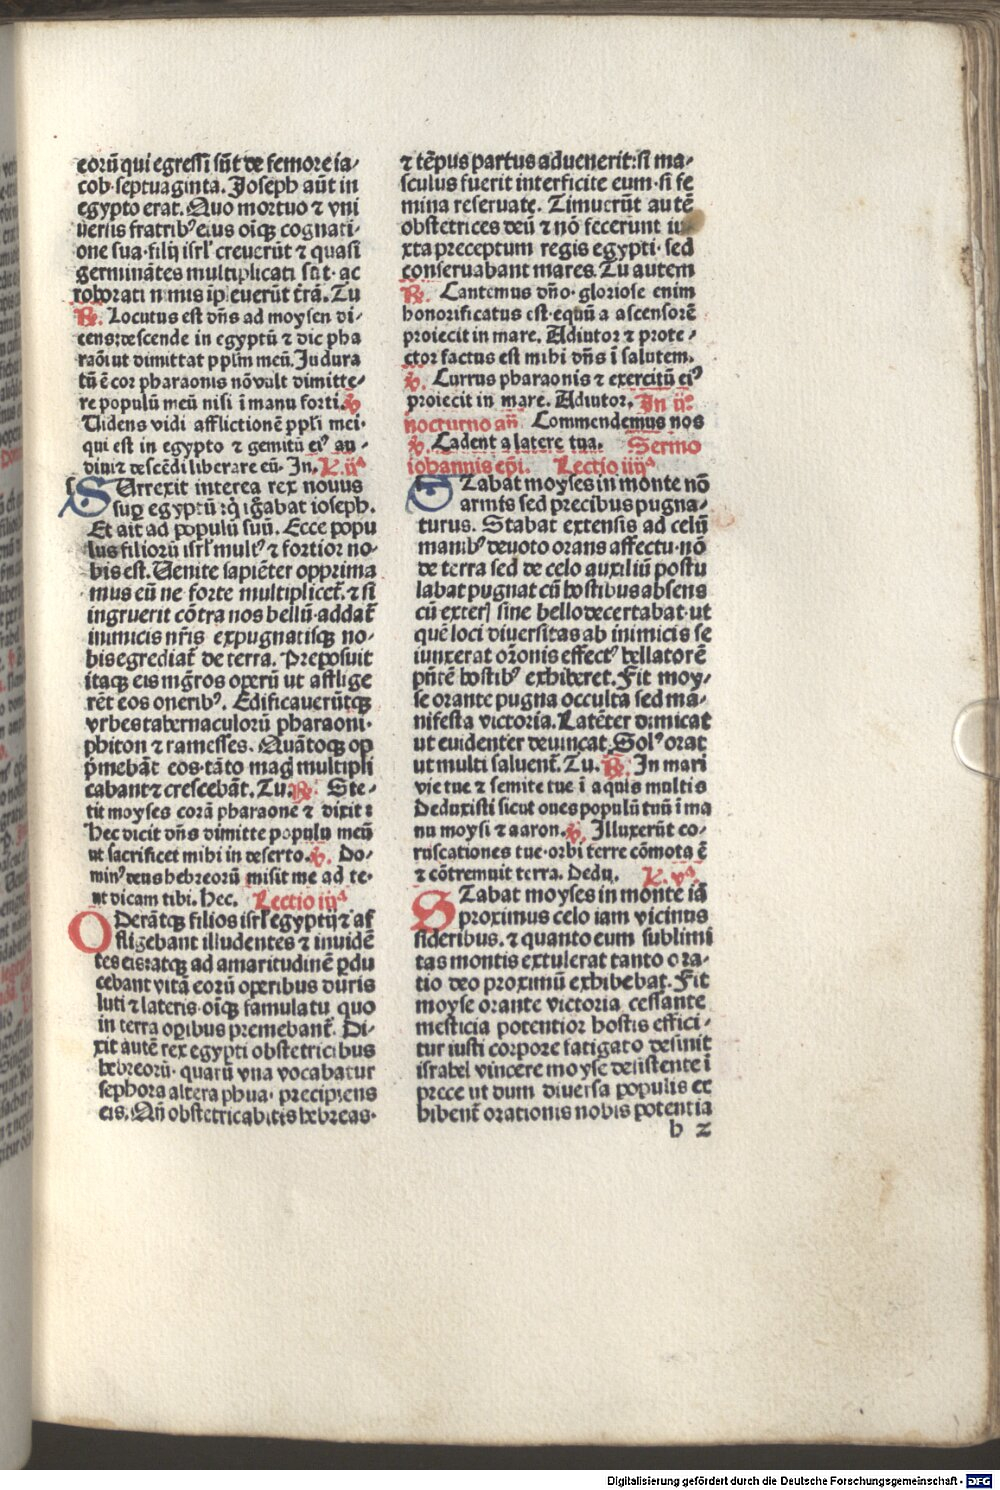 eorū qui egressi sūt de femore ia-
cob·septuaginta. Joseph aūt in
egypto erat. Quo mortuo ⁊ vni
uersis fratribꝰ eius oīqꝫ cognati-
one sua·filij isrl' creuerūt ⁊ quasi
germinātes multiplicati sūt· ac
roborati nimis īpleuerūt t̄rā. Tu
℟. Locutus est dn̄s ad moysen di-
cens:descende in egyptū ⁊ dic pha
raōi ut dimittat pplm̄ meū. Indura
tū ē cor pharaonis nō vult dimitte-
re populū meū nisi ī manu forti. ℣
Uidens vidi afflictionē ppl̄i mei·
qui est in egypto ⁊ gemitū eiꝰ au-
diui ⁊ descēdi liberare eū. In. L. ijᵃ
SUrrexit interea rex nouus
suꝑ egyptū: q̇ ig̅abat ioseph.
Et ait ad populū suū. Ecce popu
lus filiorū isrl' multꝰ ⁊ fortior no-
bis est. Uenite sapiēter opprima
mus eū ne forte multiplicet̄·⁊ si
ingruerit cōtra nos bellū·addat̄
inimicis nr̄is expugnatisqꝫ no-
bis egrediat̄ de terra. Preposuit
itaqꝫ eis mḡros operū ut afflige
rēt eos oneribꝰ. Edificauerūtqꝫ
vrbes tabernaculorū pharaoni·
phiton ⁊ ramesses. Quātoqꝫ op
p̄mebāt eos·tāto magꝭ multipli
cabant ⁊ crescebāt. Tu. ℟. Ste-
tit moyses corā pharaone ⁊ dixit:
Hec dicit dn̄s dimitte populū meū
ut sacrificet mihi in deserto. ℣. Do-
minꝰ deus hebreorū misit me ad te·
ut dicam tibi. Hec. Lectio iijᵃ
ODerātqꝫ filios isrl' egyptij ⁊ af
fligebant illudentes ⁊ inuidē
tes eis:atqꝫ ad amaritudinē ꝑdu
cebant vitā eorū operibus duris
luti ⁊ lateris·oīqꝫ famulatu quo
in terra oꝑibus premebant̄. Di-
xit autē rex egypti obstetricibus
hebreorū· quarū vna vocabatur
sephora altera phua· precipiens
eis. Qn̄ obstetricabitis hebreas·
⁊ tēpus partus aduenerit:si ma-
sculus fuerit interficite eum·si fe
mina reseruate. Timuerūt autē
obstetrices deū ⁊ nō fecerunt iu
xta preceptum regis egypti· sed
conseruabant mares. Tu autem
℟. Cantemus dn̄o· gloriose enim
honorificatus est·equū ⁊ ascensorē
proiecit in mare. Adiutor ⁊ prote-
ctor factus est mihi dn̄s ī salutem.
℣. Currus pharaonis ⁊ exercitū eiꝰ
proiecit in mare. Adiutor. In ijº
nocturno añ Commendemus nos
℣. Cadent a latere tuo. Sermo
iohannis ep̄i. Lectio iiijᵃ
STabat moyses in monte nō
armis sed precibus pugna-
turus. Stabat extensis ad celū
manibꝰ deuoto orans affectu·nō
de terra sed de celo auxiliū postu
labat pugnat cū hostibus absens
cū exterꝭ sine bello decertabat·ut
quē loci diuersitas ab inimicis se
iunxerat or̄onis effectꝰ bellatorē
pn̄tē hostibꝰ exhiberet. Fit moy-
se orante pugna occulta sed ma-
nifesta victoria. Latēter dimicat
ut euidenter deuincat. Solꝰ orat
ut multi saluent̄. Tu. ℟. In mari
vie tue ⁊ semite tue ī aquis multis
Deduxisti sicut oues populū tuū ī ma
nu moysi ⁊ aaron. ℣. Illuxerūt co-
ruscationes tue·orbi terre cōmota ē
⁊ cōtremuit terra. Dedu. L. vᵃ
STabat moyses in monte iā
proximus celo iam vicinus
sideribus. ⁊ quanto eum sublimi
tas montis extulerat tanto ora-
tio deo proximū exhibebat. Fit
moyse orante victoria cessante
mesticia potentior hostis effici-
tur iusti corpore fatigato desinit
israhel vincere moyse desistente ī
prece ut dum diuersa populis ex
hibent̄ orationis nobis potentia
b 2
Digitalisierung gefördert durch die Deutsche Forschungsgemeinschaft - DFG